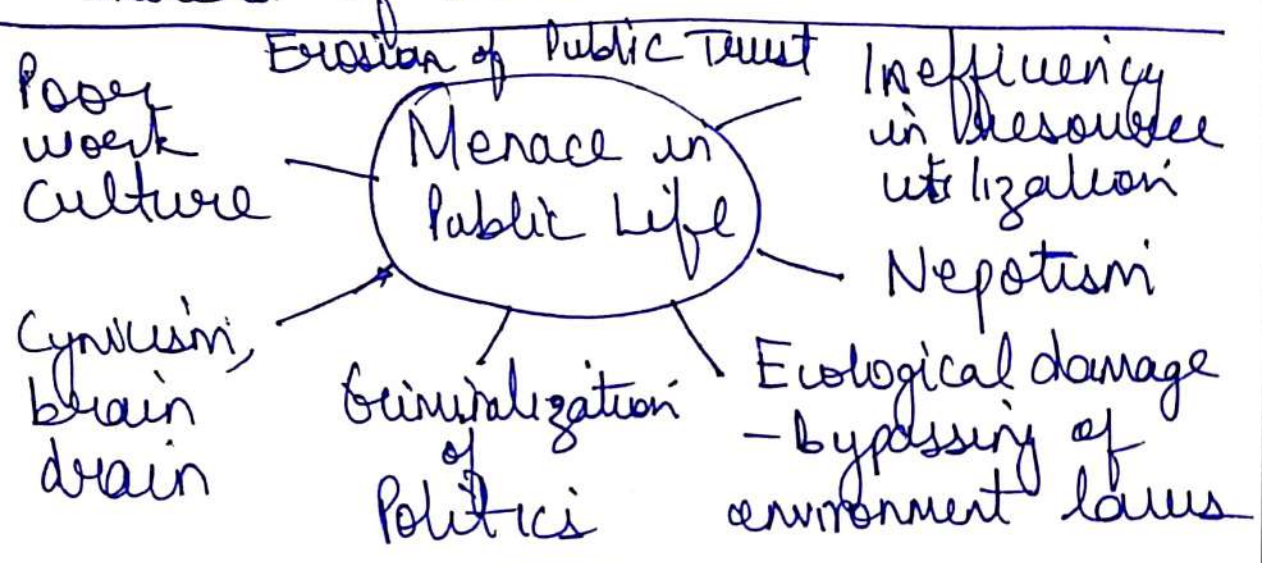 Erosion of Public Trust
Poor
work
Culture
Menace in
Public Life
Inefficiency
in resource
utilization
Nepotism
Cynicism,
brain
drain
Criminalization
of
Politics
Ecological damage
- bypassing of
environment laws